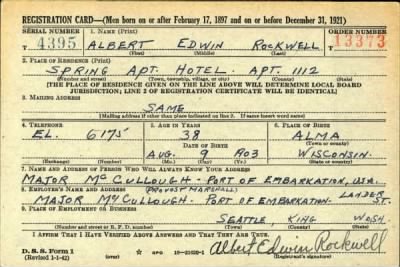 REGISTRATION CARD—(Men born on or after February 17, 1897 and on or before December 31, 1921)
SERIAL NUMBER 1. NAME (Print) ORDER NUMBER
T 4395 ALBERT EDWIN ROCKWELL T 13373
(First) (Middle) (Last)
2. PLACE OF RESIDENCE (Print)
SPRING APT. HOTEL. APT. 1112
(Number and street) (Town, township, village, or city) (County) (State)
[THE PLACE OF RESIDENCE GIVEN ON THE LINE ABOVE WILL DETERMINE LOCAL BOARD
JURISDICTION; LINE 2 OF REGISTRATION CERTIFICATE WILL BE IDENTICAL]
3. MAILING ADDRESS
SAME
(Mailing address if other than place indicated on line 2. If same insert word same)
4. TELEPHONE 5. AGE IN YEARS 6. PLACE OF BIRTH
EL. 6175 38 ALMA
DATE OF BIRTH (Town or county)
AUG. 9 1903 WISCONSIN.
(Exchange) (Number) (Mo.) (Day) (Yr.) (State or country)
7. NAME AND ADDRESS OF PERSON WHO WILL ALWAYS KNOW YOUR ADDRESS
MAJOR MCCULLOUGH - PORT OF EMBARKATION, USA.
8. EMPLOYER'S NAME AND ADDRESS (PROVOST MARSHALL) LANDER
MAJOR MCCULLOUGH - PORT OF EMBARKATION. ST.
9. PLACE OF EMPLOYMENT OR BUSINESS
SEATTLE, KING WASH.
(Number and street or R. F. D. number) (Town) (County) (State)
I AFFIRM THAT I HAVE VERIFIED ABOVE ANSWERS AND THAT THEY ARE TRUE.
D. S. S. Form 1
(Revised 1-1-42) GPO 16—21630-1 Albert Edwin Rockwell
(Registrant's signature)